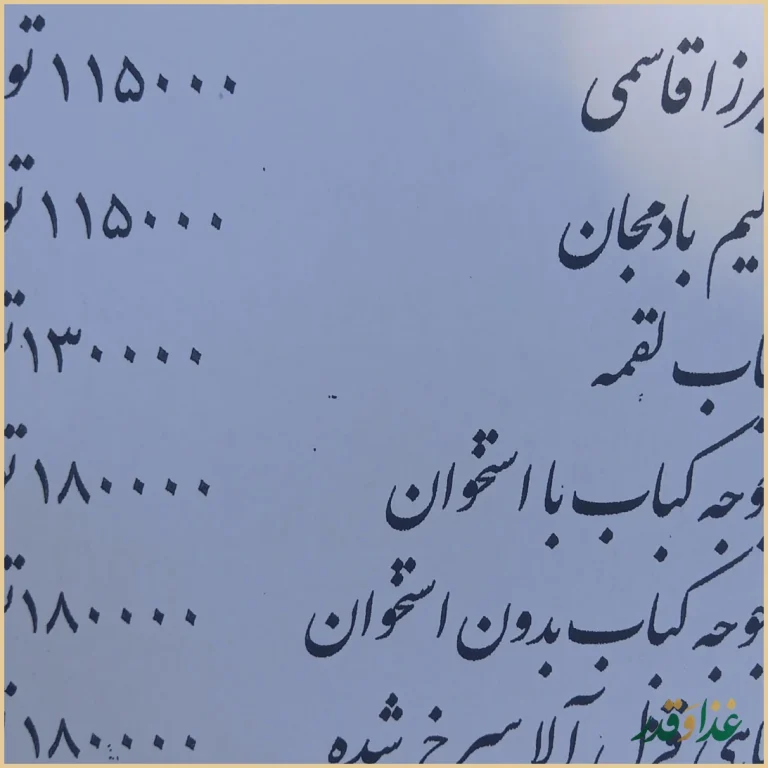 میرزاقاسمی ۱۱۵۰۰۰ تو
بادمجان ۱۱۵۰۰۰ تو
لقمه ۱۳۰۰۰۰ ت
جوجه کباب با استخوان ۱۸۰۰۰۰ ت
جوجه کباب بدون استخوان ۱۸۰۰۰۰ ت
قزل آلا سرخ شده ۱۸۰۰۰۰
غذا و قدر